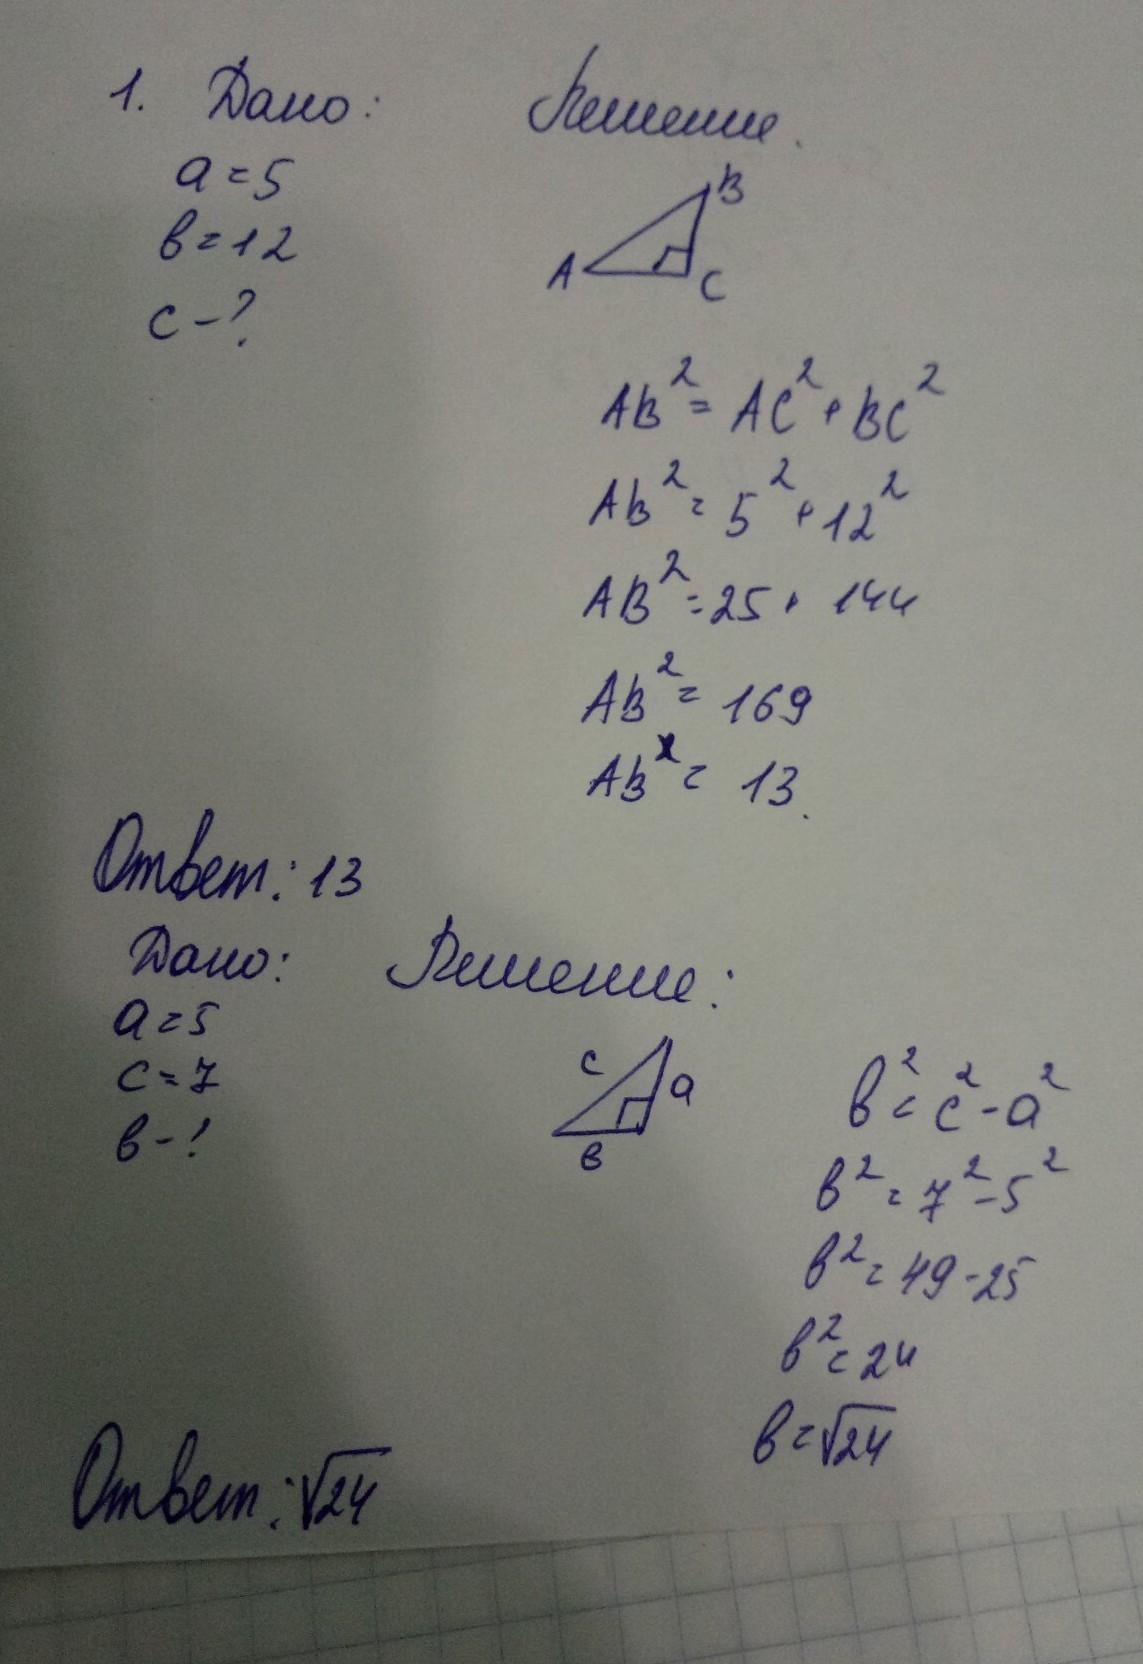 1. Дано: Решение.
a = 5
в = 12
c - ?
B
A
C
AB² = AC² + BC²
AB² = 5² + 12²
AB² = 25 + 144
AB² = 169
AB = 13.
Ответ: 13
Дано: Решение:
a = 5
c = 7
в - ?
c
a
в
в² = c² - a²
в² = 7² - 5²
в² = 49 - 25
в² = 24
в = √24
Ответ: √24